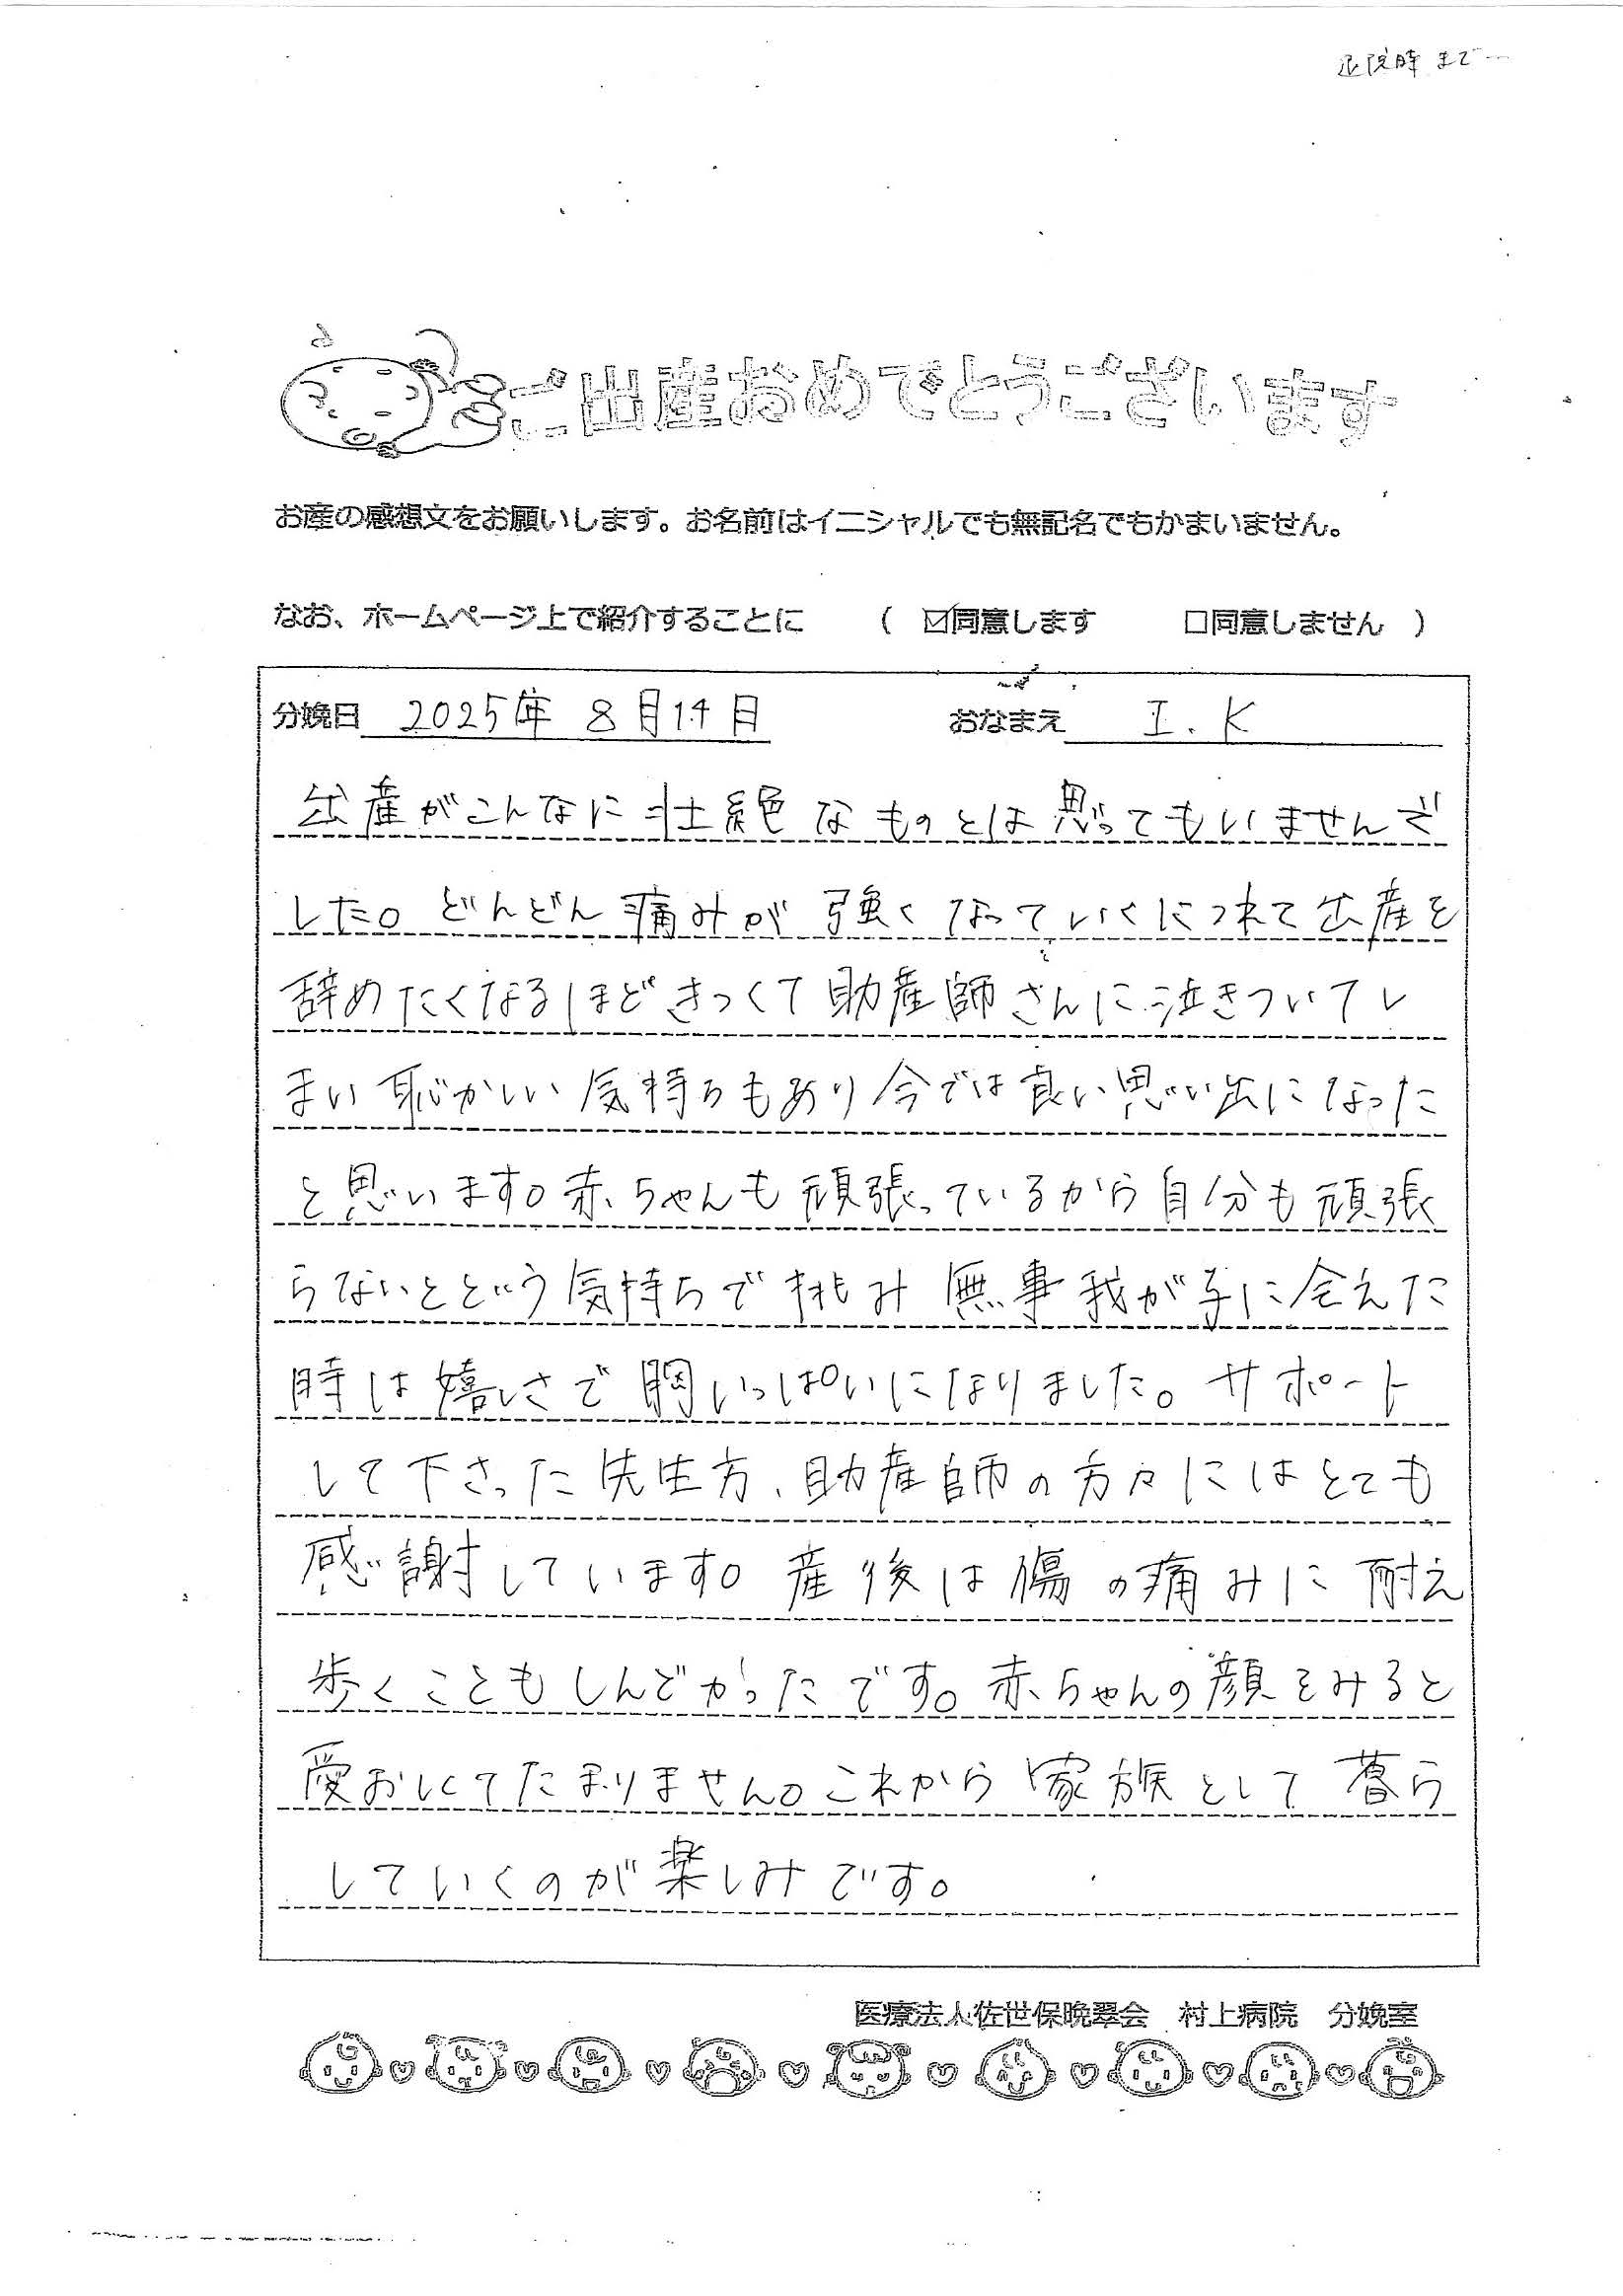 退院時まで…
ご出産おめでとうございます
お産の感想文をお願いします。お名前はイニシャルでも無記名でもかまいません。
なお、ホームページ上で紹介することに （ ☑同意します □同意しません ）
分娩日 2025年 8月14日 おなまえ I.K
出産がこんなに壮絶なものとは思ってもいませんで
した。どんどん痛みが強くなっていくにつれて出産を
辞めたくなるほどきつくて助産師さんに泣きついてし
まい恥かしい気持ちもあり今では良い思い出になった
と思います。赤ちゃんも頑張っているから自分も頑張
らないとという気持ちで挑み無事我が子に会えた
時は嬉しさで胸いっぱいになりました。サポート
して下さった先生方、助産師の方々にはとても
感謝しています。産後は傷の痛みに耐え
歩くこともしんどかったです。赤ちゃんの顔をみると
愛おしくてたまりません。これから家族として暮ら
していくのが楽しみです。
医療法人佐世保晩翠会 村上病院 分娩室